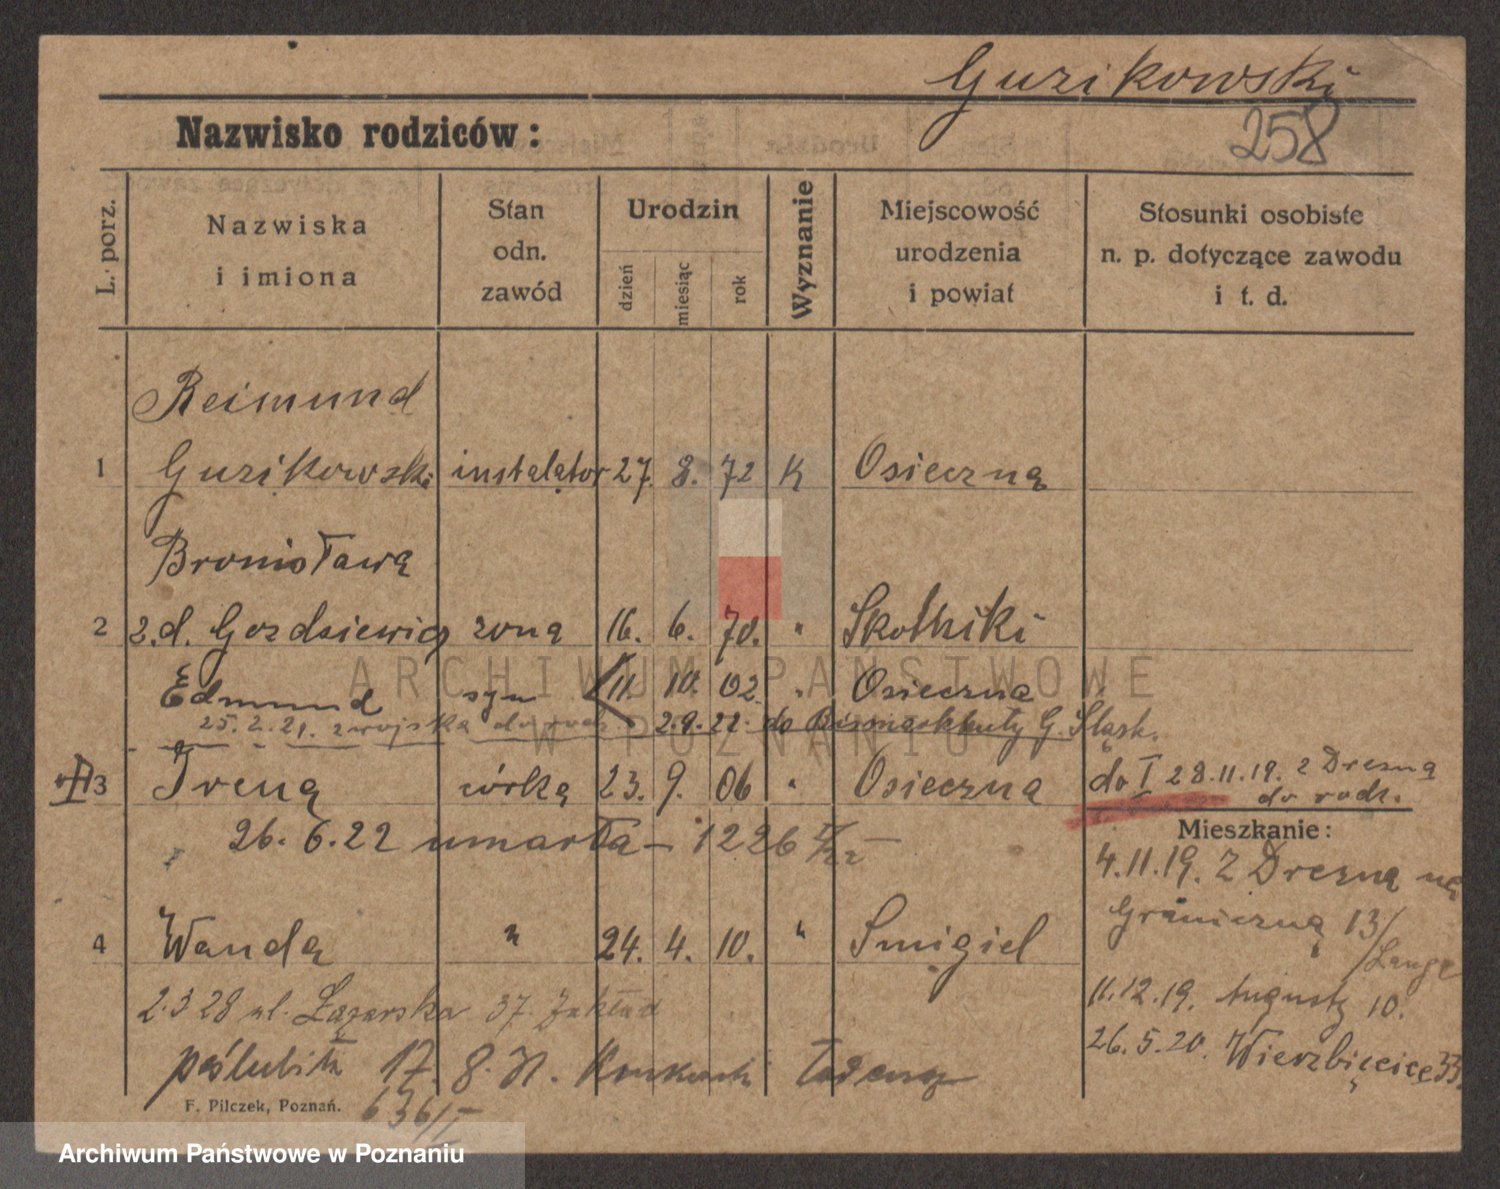 Guzikowski
258
Nazwisko rodziców:
L. porz.
Nazwiska
i imiona
Stan
odn.
zawód
Urodzin
dzień
miesiąc
rok
Wyznanie
Miejscowość
urodzenia
i powiat
Stosunki osobiste
n. p. dotyczące zawodu
i t. d.
Reimund
1 Guzikowski instalator 27. 8. 72 K Osieczna
Bronisława
2 z.d. Gozdziewicz żona 16. 6. 70. " Skotniki
Edmund syn 11. 10. 02. " Osieczna
25.2.21. z wojska do rodz. 2.9.22. do Bismarkhuty G. Śląsk.
3 Irena córka 23. 9. 06 " Osieczna
do I 28.11.19. z Drezna
do rodz.
26.6.22 umarła – 1226
Mieszkanie:
4.11.19. z Drezna na
Graniczną 13/
Lange
4 Wanda " 24. 4. 10. " Śmigiel
11.12.19. Augusty 10.
2.3 28 ul. Łazarska 37. Zakład
26.5.20. Wierzbięcice 33.
poślubiła 17. 8.
F. Pilczek, Poznań.
636/I
ARCHIWUM PAŃSTWOWE
W POZNANIU
Archiwum Państwowe w Poznaniu